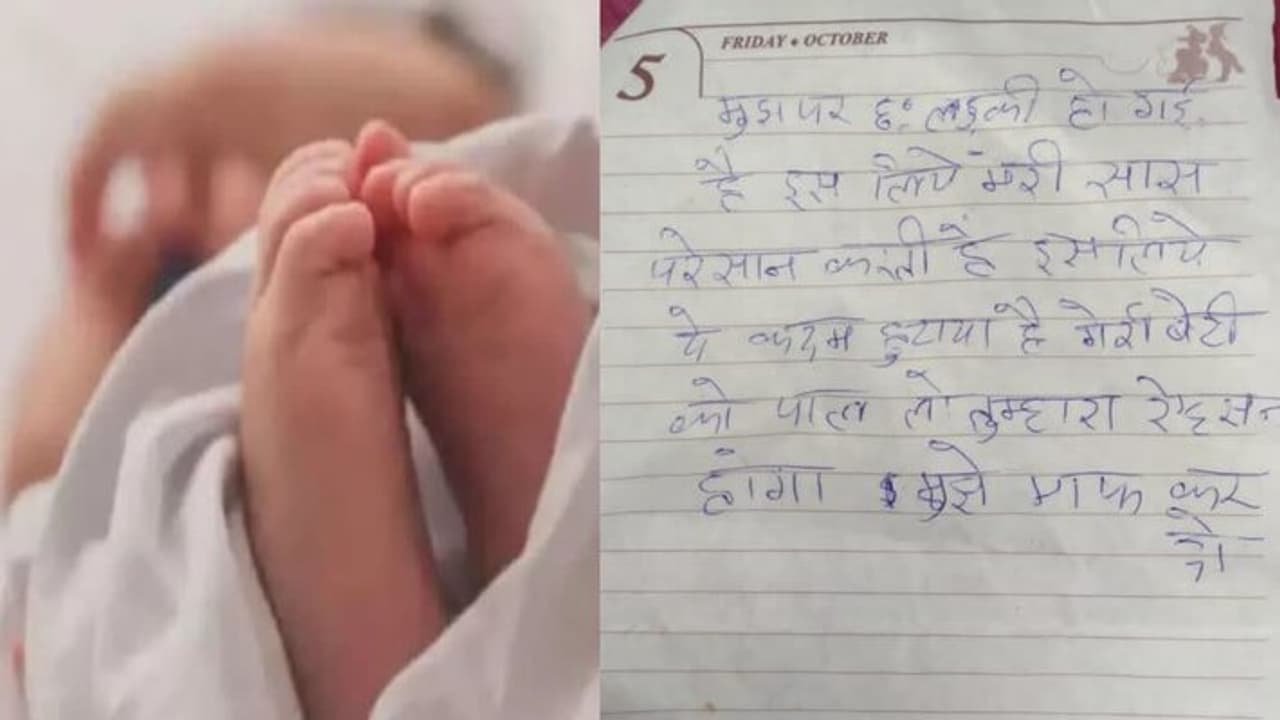 5
FRIDAY • OCTOBER
मुझ पर छः लड़की हो गई.
है इस लिये मेरी सास
परेसान करती है इसलिये
ये कदम हुटाया है मेरी बेटी
को पाल लो तुम्हारा ऐहसन
होगा मुझे माफ कर
दो